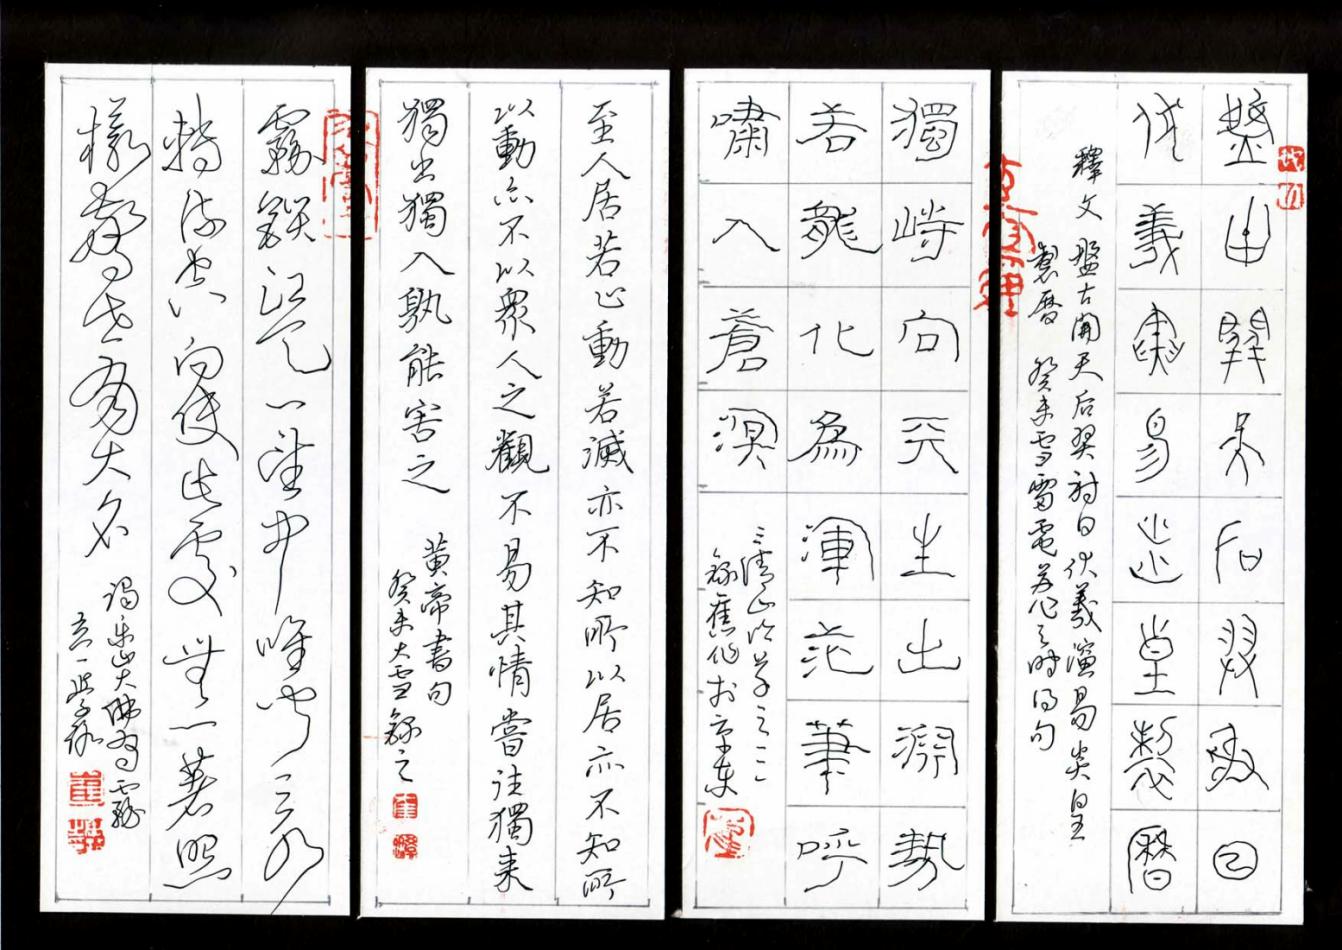 盤古開天后羿射日
伏羲演易炎皇製曆
釋文 盤古開天后羿射日伏羲演易炎皇
製曆 癸未雪雷電並作之時得句
獨峙向天生出淵勢
若龍化為渾茫筆呼
嘯入蒼溟
三清山吟草之二
錄舊作於京東
至人居若 動若滅亦不知所以居亦不知所
以動亦不以衆人之觀不易其情當往獨來
獨出獨入孰能害之
黃帝書句
癸未大雪錄之
霧鎖江天一望中唯 三水
轉流 向使此處無一著照
樣 大名
謁樂山大佛有霧